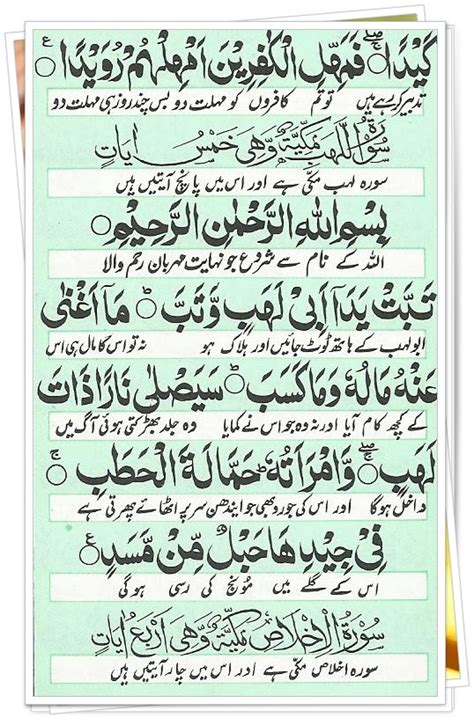 كَيْدًا فَمَهِّلِ الْكٰفِرِيْنَ اَمْهِلْهُمْ رُوَيْدًا
تدبیر کر رہے ہیں تو تم کافروں کو مہلت دو بس چند روز ہی مہلت دو
سُوْرَةُ اللَّهَبِ مَكِّيَّةٌ وَّهِيَ خَمْسُ اٰيَاتٍ
سورہ لہب مکی ہے اور اس میں پانچ آیتیں ہیں
بِسْمِ اللهِ الرَّحْمٰنِ الرَّحِيْمِ
اللہ کے نام سے شروع جو نہایت مہربان رحم والا
تَبَّتْ يَدَآ اَبِيْ لَهَبٍ وَّتَبَّ مَآ اَغْنٰى
ابولہب کے ہاتھ ٹوٹ جائیں اور ہلاک ہو نہ تو اس کا مال ہی اس
عَنْهُ مَالُهٗ وَمَا كَسَبَ سَيَصْلٰى نَارًا ذَاتَ
کے کچھ کام آیا اور نہ وہ جو اس نے کمایا وہ جلد بھڑکتی ہوئی آگ میں
لَهَبٍ وَّامْرَاَتُهٗ حَمَّالَةَ الْحَطَبِ
داخل ہوگا اور اس کی جورو بھی جو ایندھن سر پر اٹھائے پھرتی ہے
فِيْ جِيْدِهَا حَبْلٌ مِّنْ مَّسَدٍ
اس کے گلے میں مونج کی رسی ہوگی
سُوْرَةُ الْاِخْلَاصِ مَكِّيَّةٌ وَّهِيَ اَرْبَعُ اٰيَاتٍ
سورہ اخلاص مکی ہے اور اس میں چار آیتیں ہیں